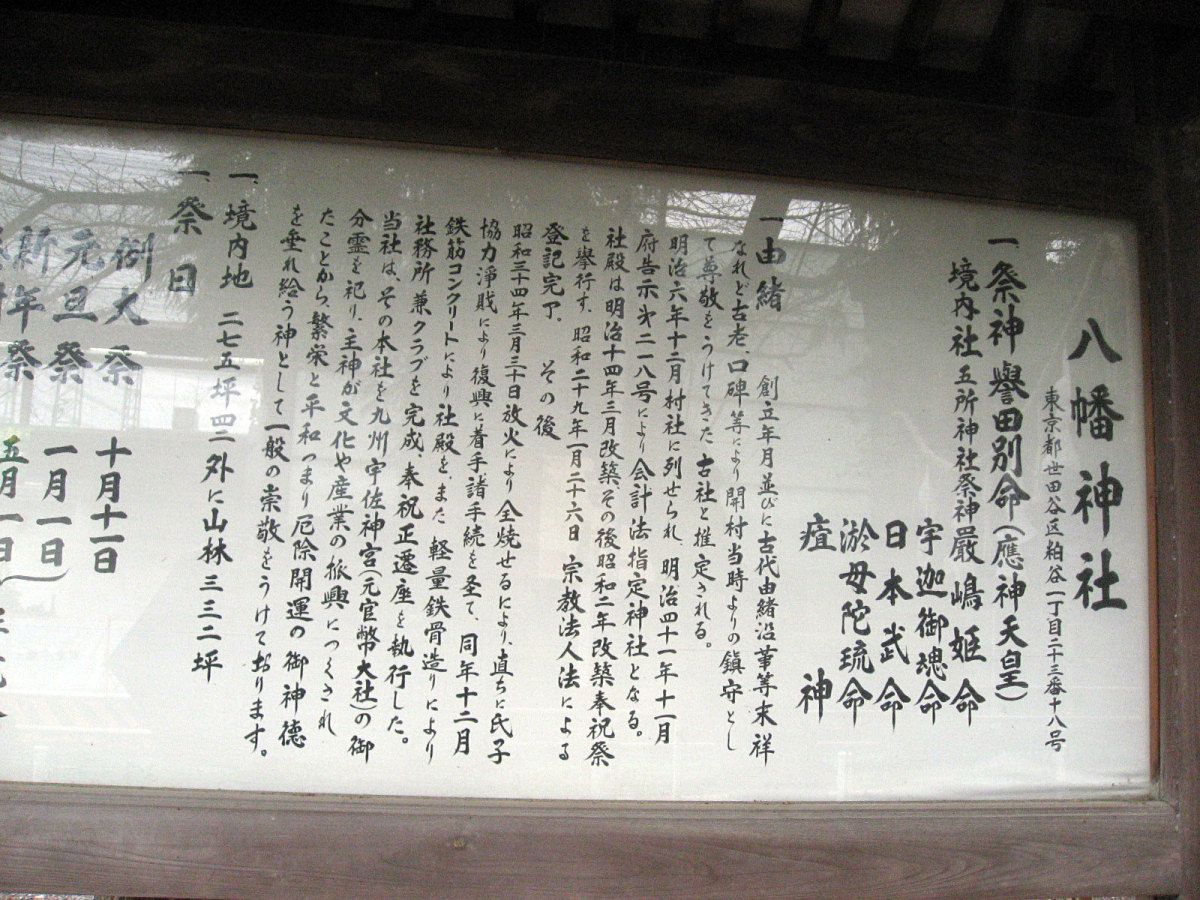 八幡神社
東京都世田谷区粕谷一丁目二十三番十八号
一、祭神 譽田別命(應神天皇)
境内社 五所神社祭神 嚴嶋姫命
宇迦御魂命
日本武命
淤母陀琉命
疽神
一、由緒 創立年月並びに古代由緒沿革等未祥
なれど古老、口碑等により開村当時よりの鎭守とし
て尊敬をうけてきた古社と推定される。
明治六年十二月村社に列せられ、明治四十一年十一月
府告示才二一八号により会計法指定神社となる。
社殿は明治十四年三月改築、その後昭和二年改築奉祝祭
を擧行す、昭和二十九年一月二十六日 宗教法人法による
登記完了、 その後
昭和三十四年三月三十日放火により全焼せるにより、直ちに氏子
協力淨財により復興に着手、諸手続を圣て、同年十二月
鉄筋コンクリートにより社殿を、また軽量鉄骨造りにより
社務所兼クラブを完成、奉祝正遷座を執行した。
当社は、その本社を九州宇佐神宮(元官幣大社)の御
分霊を祀り、主神が文化や産業の振興につくされ
たことから、繁栄と平和つまり厄除開運の御神德
を垂れ給う神として一般の崇敬をうけております。
一、境内地 二七五坪四二外に山林三三二坪
一、祭日
例大祭 十月十一日
元旦祭 一月一日
新年祭 五月一日